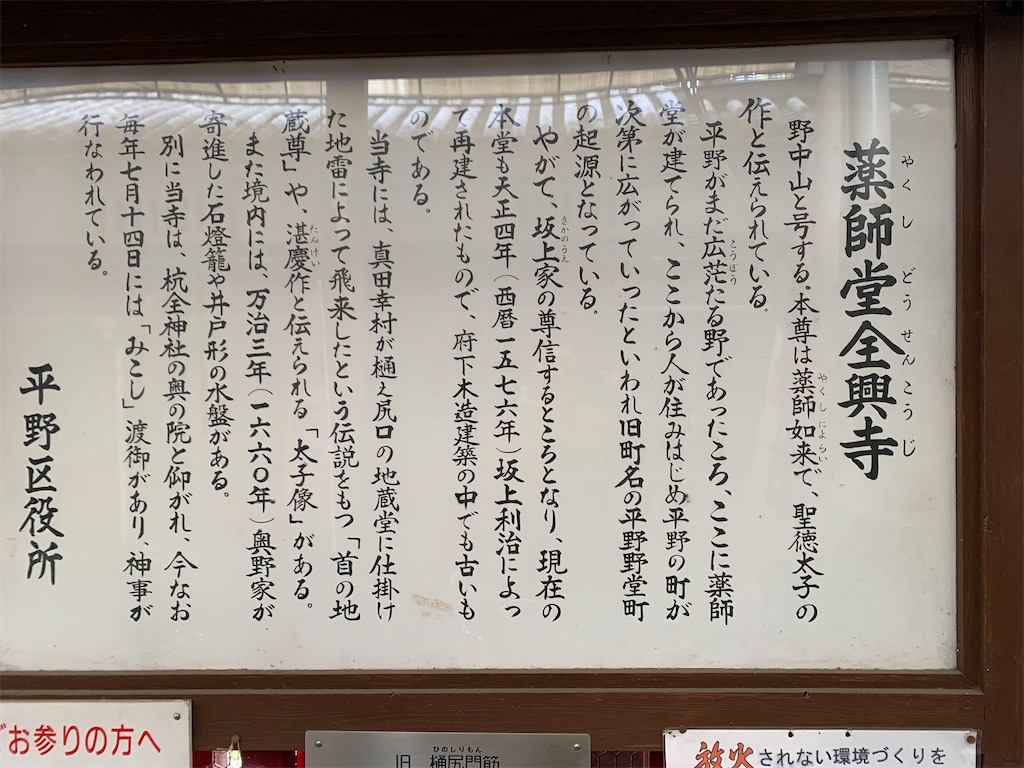 薬師堂全興寺
やくし どう せんこうじ
野中山と号する。本尊は薬師如来で、聖徳太子の
やくしによらい
作と伝えられている。
平野がまだ広茫たる野であったころ、ここに薬師
こうぼう
堂が建てられ、ここから人が住みはじめ平野の町が
次第に広がっていったといわれ旧町名の平野野堂町
の起源となっている。
やがて、坂上家の尊信するところとなり、現在の
さかのうえ
本堂も天正四年（西暦一五七六年）坂上利治によっ
て再建されたもので、府下木造建築の中でも古いも
のである。
当寺には、真田幸村が樋え尻口の地蔵堂に仕掛け
た地雷によって飛来したという伝説をもつ「首の地
蔵尊」や、湛慶作と伝えられる「太子像」がある。
たんけい
また境内には、万治三年（一六六〇年）奥野家が
寄進した石燈籠や井戸形の水盤がある。
別に当寺は、杭全神社の奥の院と仰がれ、今なお
毎年七月十四日には「みこし」渡御があり、神事が
行なわれている。
平野区役所
ごお参りの方へ
ひのしりもん
旧 樋尻門筋
放火されない環境づくりを